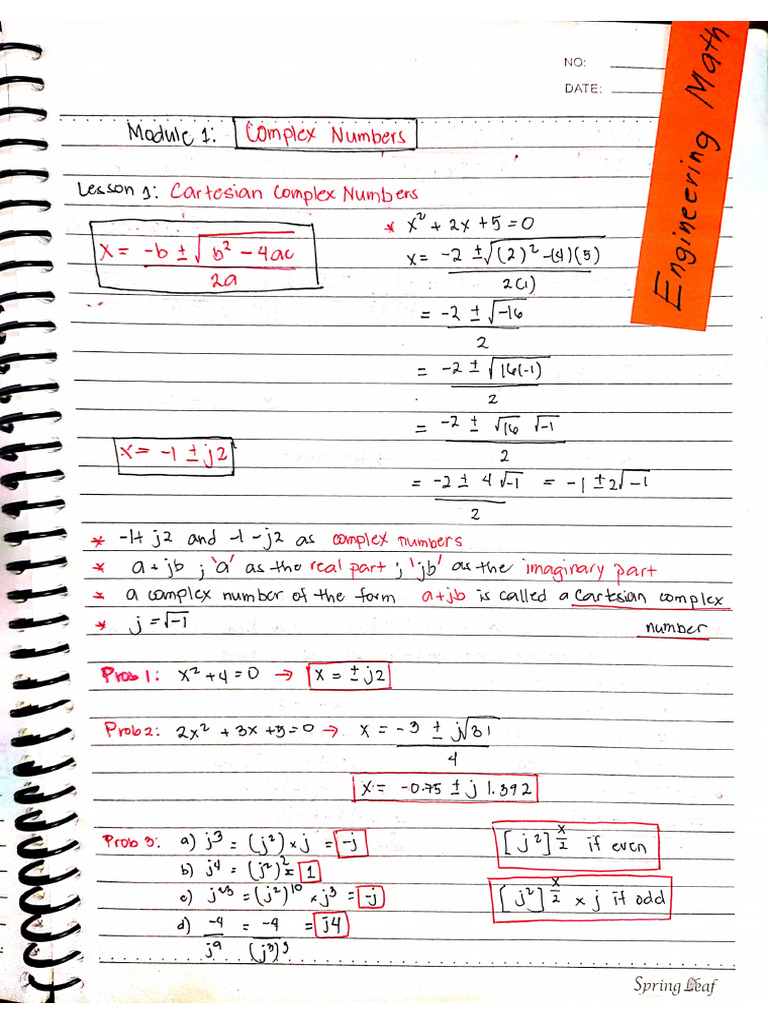 NO:
DATE:
Engineering Math
Module 1: Complex Numbers
Lesson 1: Cartesian Complex Numbers
x = -b ± √b² - 4ac / 2a
* x² + 2x + 5 = 0
x = -2 ± √(2)² -(4)(5) / 2(1)
= -2 ± √-16 / 2
= -2 ± √16(-1) / 2
= -2 ± √16 √-1 / 2
= -2 ± 4√-1 / 2 = -1 ± 2√-1
x = -1 ± j2
* -1+j2 and -1-j2 as complex numbers
* a+jb ; 'a' as the real part ; 'jb' as the imaginary part
* a complex number of the form a+jb is called a Cartesian complex
number
* j = √-1
Prob 1: x² + 4 = 0 → x = ± j2
Prob 2: 2x² + 3x + 5 = 0 → x = -3 ± j√31 / 4
x = -0.75 ± j 1.392
Prob 3: a) j³ = (j²) × j = -j
b) j⁴ = (j²)² = 1
c) j²³ = (j²)¹⁰ × j³ = -j
d) -4 / j⁹ = -4 / (j³)³ = j4
[j²] x/2 if even
[j²] x/2 × j if odd
Spring Leaf